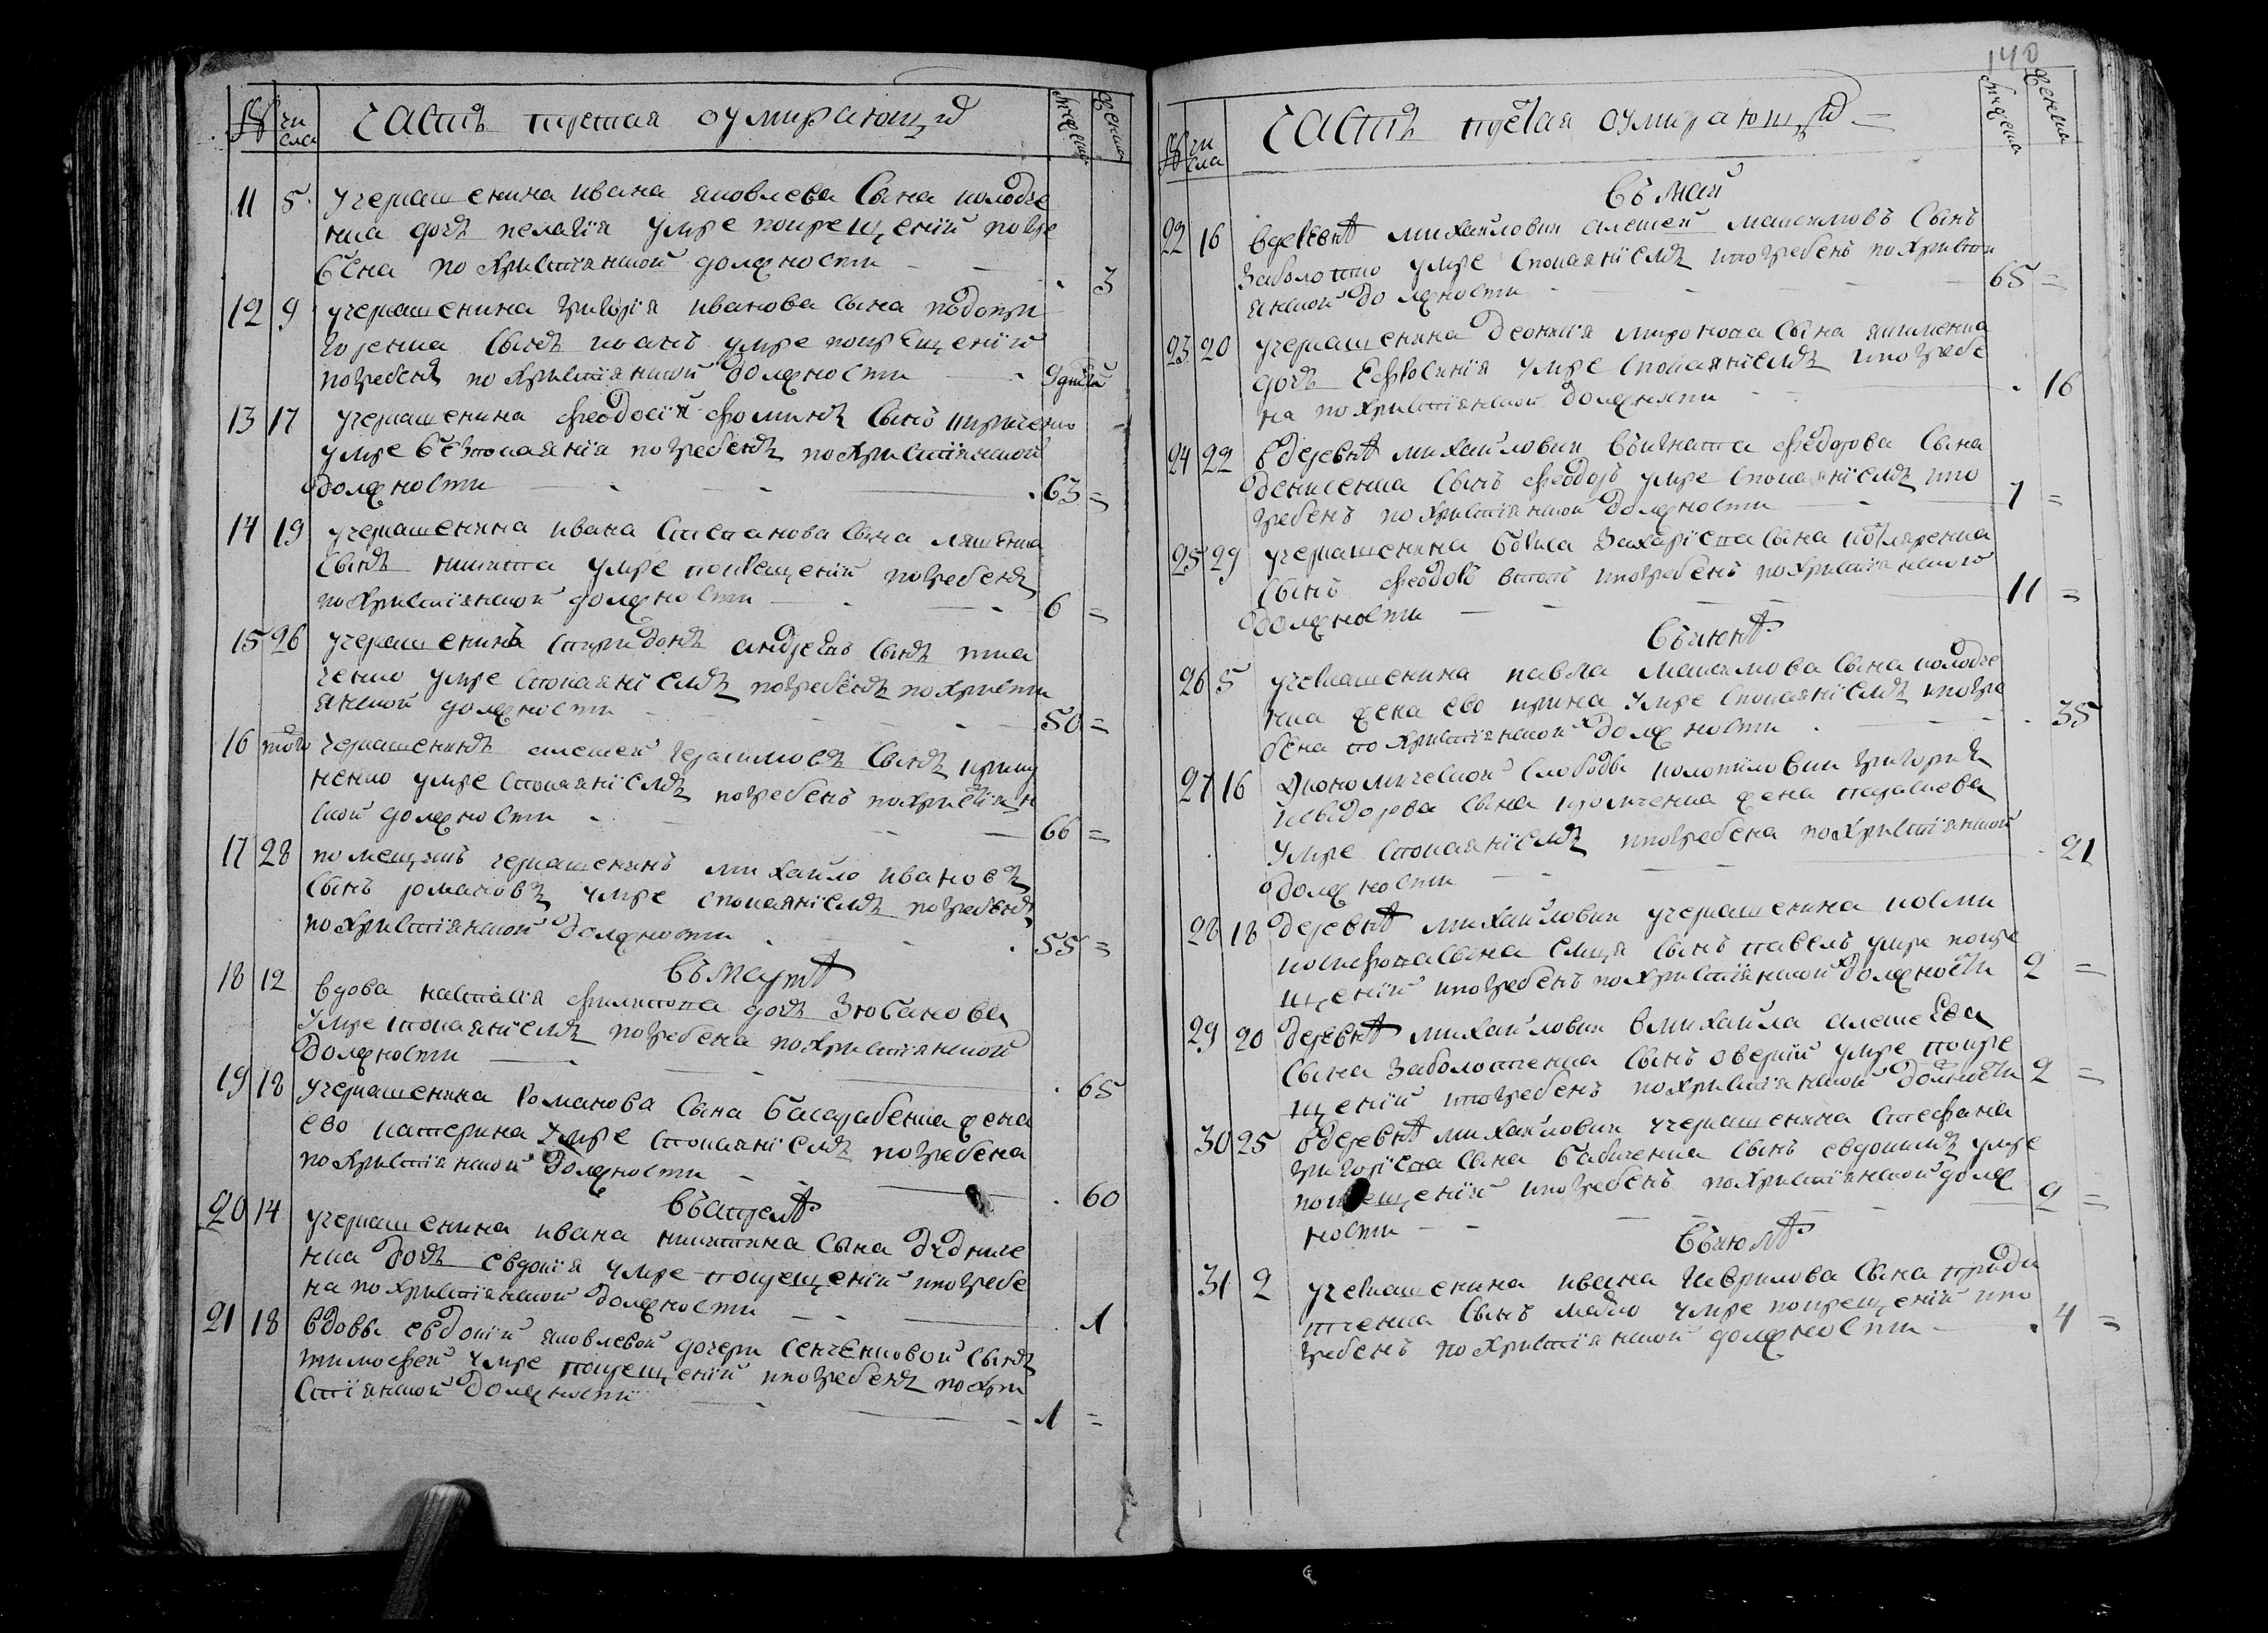 № чи
сла
часть третая оумирающи
мужеска
женска
11 5 у черкашенина ивана яковлева сына колодче
нка дочь пелагия умре покрещении погре
бена по християнской должности 3
12 9 у черкашенина григория иванова сына подопри
горенка сынъ иванъ умре покрещении
погребенъ по християнской должности 9 дней
13 17 у черкашенина феодосии фоминъ сынъ
умре безпокаяния погребенъ по християнской
должности 63 =
14 19 у черкашенина ивана степанова сына ляшенка
сынъ никита умре покрещении погребенъ
по християнской должности 6 =
15 26 у черкашенина спиридонъ андреевъ сынъ тка
ченко умре спокаяниемъ погребенъ по христи
янской должности 50 =
16 того черкашенинъ алексей герасимовъ сынъ
ненко умре спокаяниемъ погребенъ по християн
ской должности 66 =
17 28 помещикъ черкашенинъ михайло ивановъ
сынъ романовъ умре спокаяниемъ погребенъ
по християнской должности 55 =
въ мартѣ
18 12 вдова настасия филипова дочь зюбанова
умре спокаяниемъ погребена по християнской
должности 65
19 18 у черкашенина романова сына басарабенка жена
ево катерина умре спокаяниемъ погребена
по християнской должности 60
въ апрелѣ
20 14 у черкашенина ивана никитина сына дудниче
нка дочь евдокия умре покрещении ипогребе
на по християнской должности 1
21 18 вдовы евдокии яковлевой дочери сенченковой сынъ
тимофей умре покрещении ипогребенъ по хри
стиянской должности 1 =
140
№ чи
сла
часть третая оумирающи
мужеска
женска
въ маи
22 16 вдеревнѣ михайловки алексей максимовъ сынъ
заболотко умре спокаяниемъ ипогребенъ по христи
янской должности 65 =
23 20 у черкашенина деонисия миронова сына якименка
дочь ефросиния умре спокаяниемъ ипогребе
на по християнской должности 16
24 22 вдеревнѣ михайловки въ игната федорова сына
денисенка сынъ феодоръ умре спокаяниемъ ипо
гребенъ по християнской должности 7 =
25 29 у черкашенина бориса захариева сына котляренка
сынъ феодоръ ипогребенъ по християнского
должности 11 =
въ июнѣ
26 5 у черкашенина павла максимова сына колодче
нка жена ево ирина умре спокаяниемъ ипогре
бена по християнской должности 35
27 16 Економической слободы колотиловки григория
исидорова сына жена параскева
умре спокаяниемъ ипогребена по християнской
должности 21
28 18 деревнѣ михайловки у черкашенина косми
иосифова сына емця сынъ павелъ умре покре
щении ипогребенъ по християнской должности 2 =
29 20 деревнѣ михайловки вмихайла алексеева
сына заболотченка сынъ оверкий умре покре
щении ипогребенъ по християнской должности 2 =
30 25 вдеревнѣ михайловки у черкашенина стефана
григориева сына бабиченка сынъ евдокимъ умре
покрещении ипогребенъ по християнской долж
ности 2 =
въ июлѣ
31 2 у черкашенина ивана гаврилова сына приди
тченка сынъ умре покрещении ипо
гребенъ по християнской должности 4 =